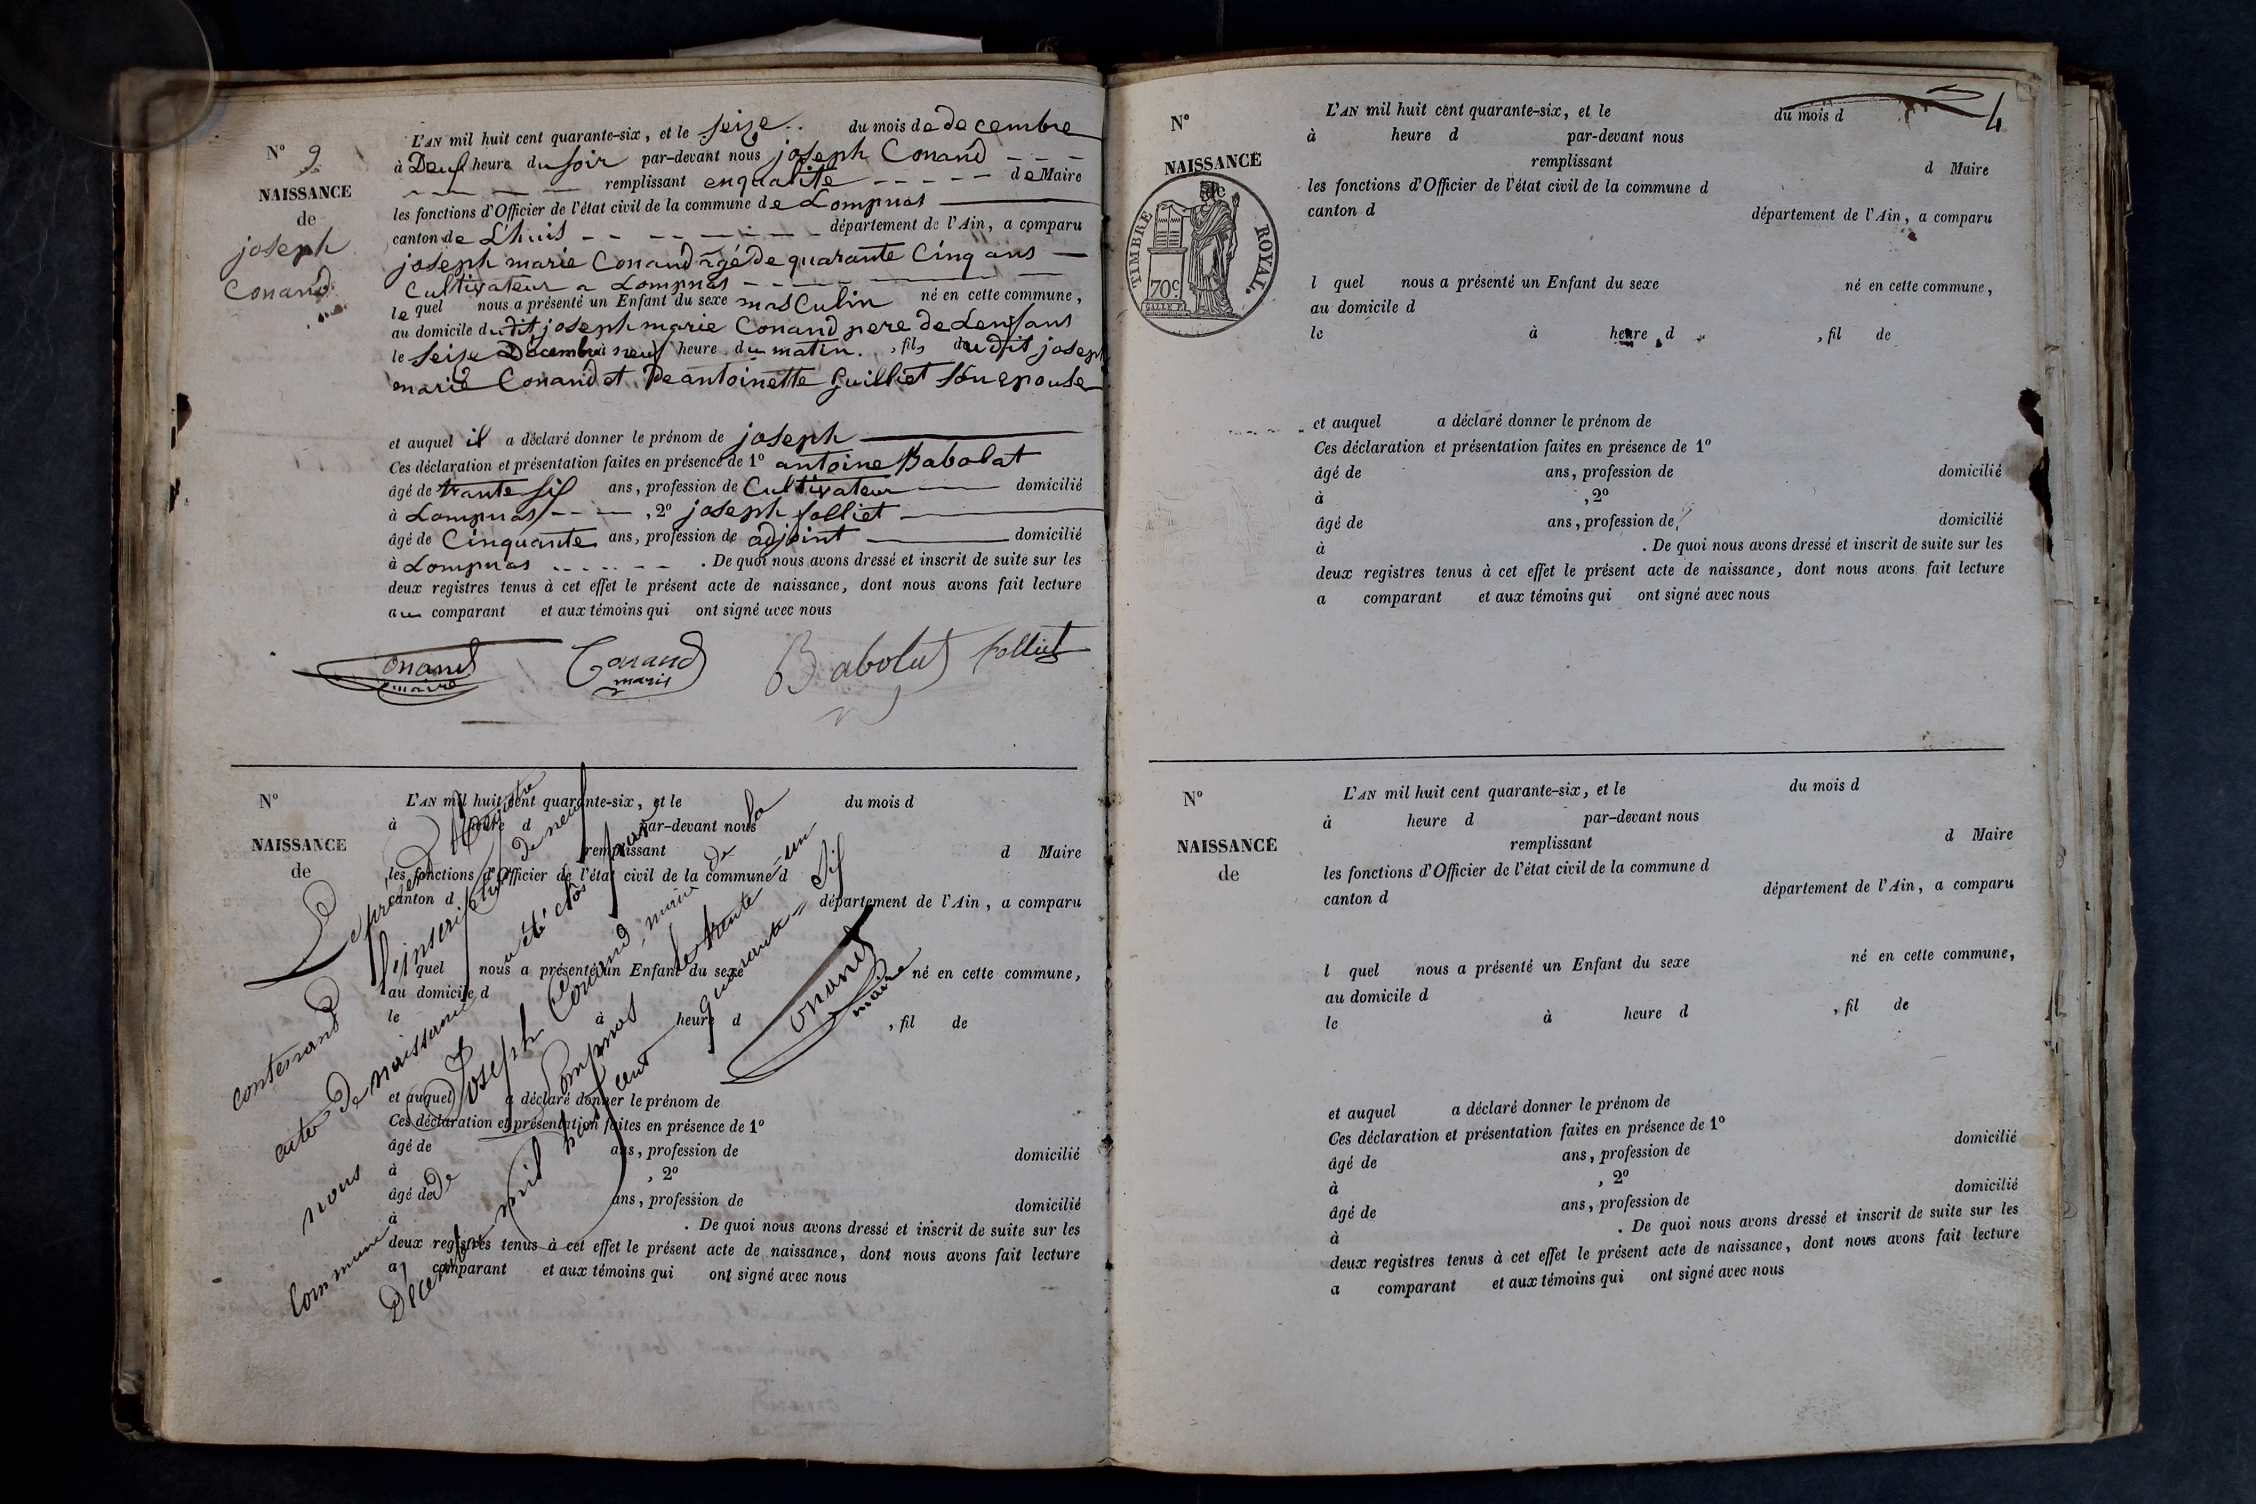 N° 9
NAISSANCE
de
joseph
Conand
L'AN mil huit cent quarante-six, et le seize du mois de decembre
à Deux heure du soir par-devant nous joseph Conand
remplissant enqualité de Maire
les fonctions d'Officier de l'état civil de la commune de Lompnas
canton de L'huis département de l'Ain, a comparu
joseph marie Conand âgé de quarante Cinq ans
Cultivateur a Lompnas
le quel nous a présenté un Enfant du sexe masCulin né en cette commune,
au domicile dudit joseph marie Conand pere de Lenfant
le seize Décembre à neuf heure du matin, fils dudit joseph
marie Conand et De antoinette Guilliet son epouse
et auquel il a déclaré donner le prénom de joseph
Ces déclaration et présentation faites en présence de 1° antoine Babolat
âgé de trante six ans, profession de Cultivateur domicilié
à Lompnas, 2° joseph folliet
âgé de Cinquante ans, profession de adjoint domicilié
à Lompnas. De quoi nous avons dressé et inscrit de suite sur les
deux registres tenus à cet effet le présent acte de naissance, dont nous avons fait lecture
au comparant et aux témoins qui ont signé avec nous
Conand
maire
Conand
marie
Babolat
folliet
N°
NAISSANCE
de
L'AN mil huit cent quarante-six, et le du mois d
à heure d par-devant nous
remplissant d Maire
les fonctions d'Officier de l'état civil de la commune d
canton d département de l'Ain, a comparu
l quel nous a présenté un Enfant du sexe né en cette commune,
au domicile d
le à heure d , fil de
et auquel a déclaré donner le prénom de
Ces déclaration et présentation faites en présence de 1°
âgé de ans, profession de domicilié
à , 2°
âgé de ans, profession de domicilié
à . De quoi nous avons dressé et inscrit de suite sur les
deux registres tenus à cet effet le présent acte de naissance, dont nous avons fait lecture
a comparant et aux témoins qui ont signé avec nous
Le présent Registre
contenand l'inscription de neuf
actes de naissance a été clos par
nous Joseph Conand, maire de la
Commune de Lompnas le trente-un
Décembre mil huit cent quarante-six
Conand
maire
4
N°
NAISSANCE
de
TIMBRE ROYAL.
70c
L'AN mil huit cent quarante-six, et le du mois d
à heure d par-devant nous
remplissant d Maire
les fonctions d'Officier de l'état civil de la commune d
canton d département de l'Ain, a comparu
l quel nous a présenté un Enfant du sexe né en cette commune,
au domicile d
le à heure d , fil de
et auquel a déclaré donner le prénom de
Ces déclaration et présentation faites en présence de 1°
âgé de ans, profession de domicilié
à , 2°
âgé de ans, profession de domicilié
à . De quoi nous avons dressé et inscrit de suite sur les
deux registres tenus à cet effet le présent acte de naissance, dont nous avons fait lecture
a comparant et aux témoins qui ont signé avec nous
N°
NAISSANCE
de
L'AN mil huit cent quarante-six, et le du mois d
à heure d par-devant nous
remplissant d Maire
les fonctions d'Officier de l'état civil de la commune d
canton d département de l'Ain, a comparu
l quel nous a présenté un Enfant du sexe né en cette commune,
au domicile d
le à heure d , fil de
et auquel a déclaré donner le prénom de
Ces déclaration et présentation faites en présence de 1°
âgé de ans, profession de domicilié
à , 2°
âgé de ans, profession de domicilié
à . De quoi nous avons dressé et inscrit de suite sur les
deux registres tenus à cet effet le présent acte de naissance, dont nous avons fait lecture
a comparant et aux témoins qui ont signé avec nous